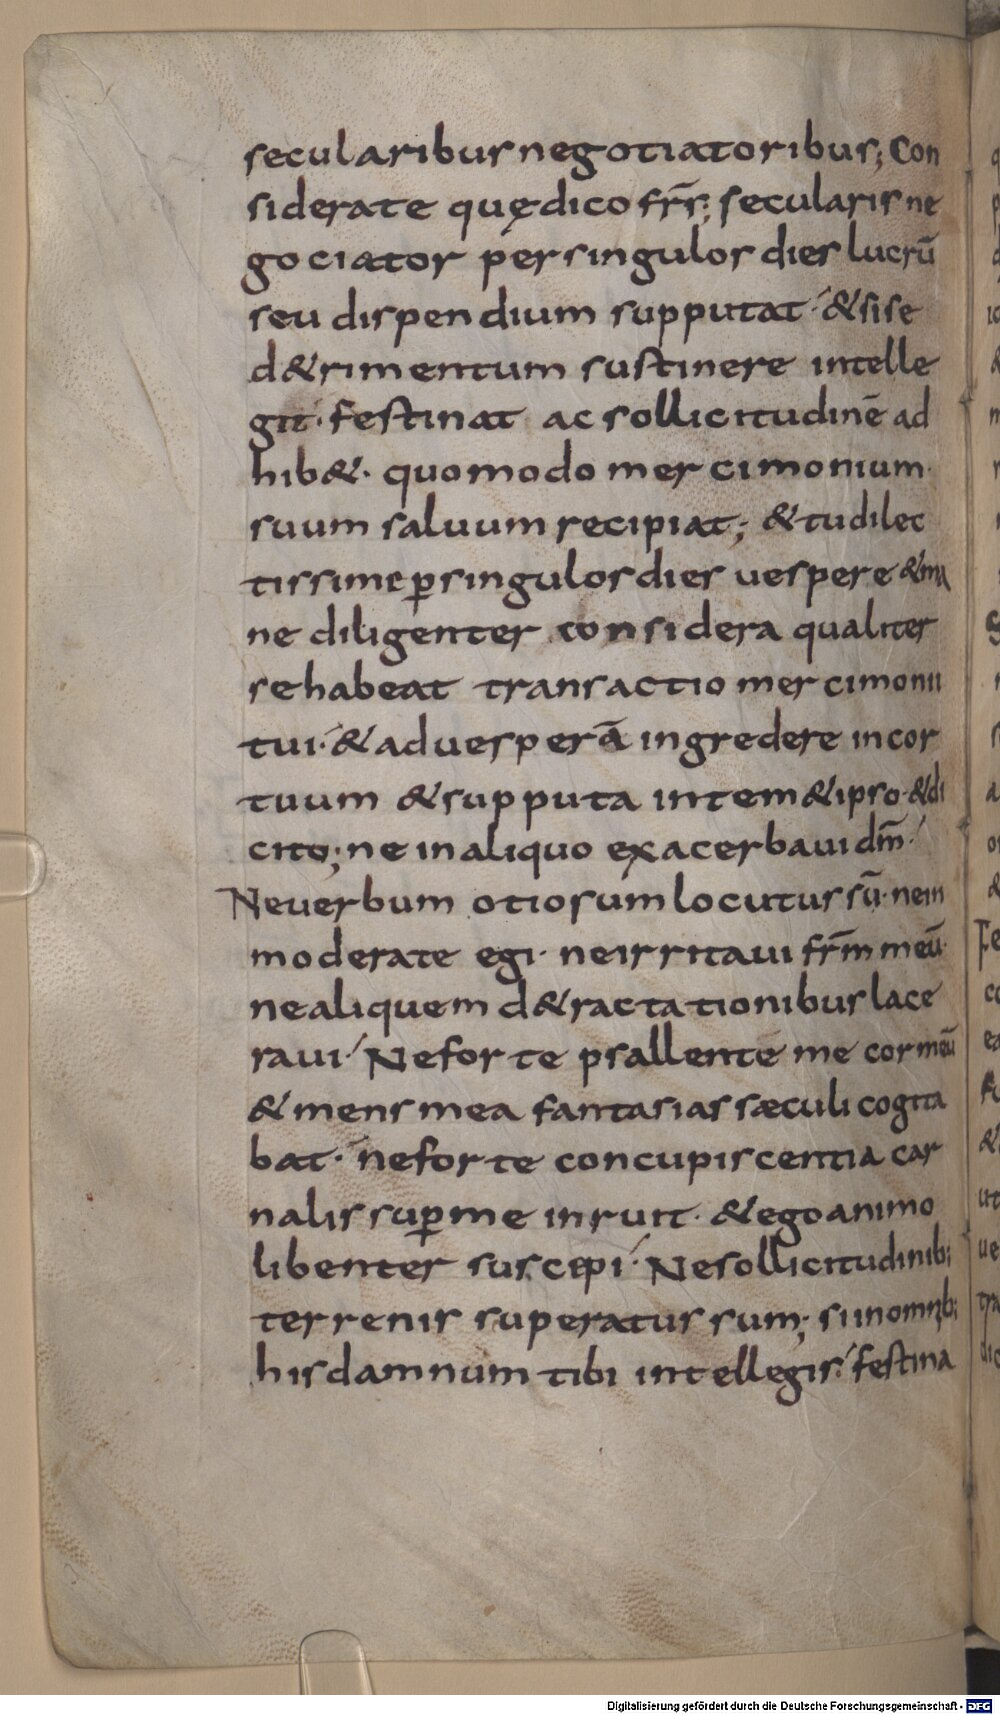 secularibus negotiatoribus; Con
siderate quę dico frs̄; secularis ne
gociator per singulos dies lucrū
seu dispendium supputat· & si se
d&rimentum sustinere intelle
git· festinat ac sollicitudinē ad
hib&· quomodo mercimonium
suum saluum recipiat; & tu dilec
tissime ꝑ singulos dies uespere & ma
ne diligenter considera qualiter
se habeat transactio mercimonii
tui· & ad uesperā ingredere in cor
tuum & supputa in tem& ipso· & di
cito; ne in aliquo exacerbaui dm̄·
Ne uerbum otiosum locutus sū· ne in
moderate egi· ne irritaui frm̄ meū·
ne aliquem d&ractationibus lace
raui· Ne forte psallente me cor meū
& mens mea fantasias sæculi cogita
bat· ne forte concupiscentia car
nalis suꝑ me inruit· & ego animo
libenter suscepi· Ne sollicitudinib;
terrenis superatus sum; si in omnib;
his damnum tibi intellegis· festina
Digitalisierung gefördert durch die Deutsche Forschungsgemeinschaft - DFG